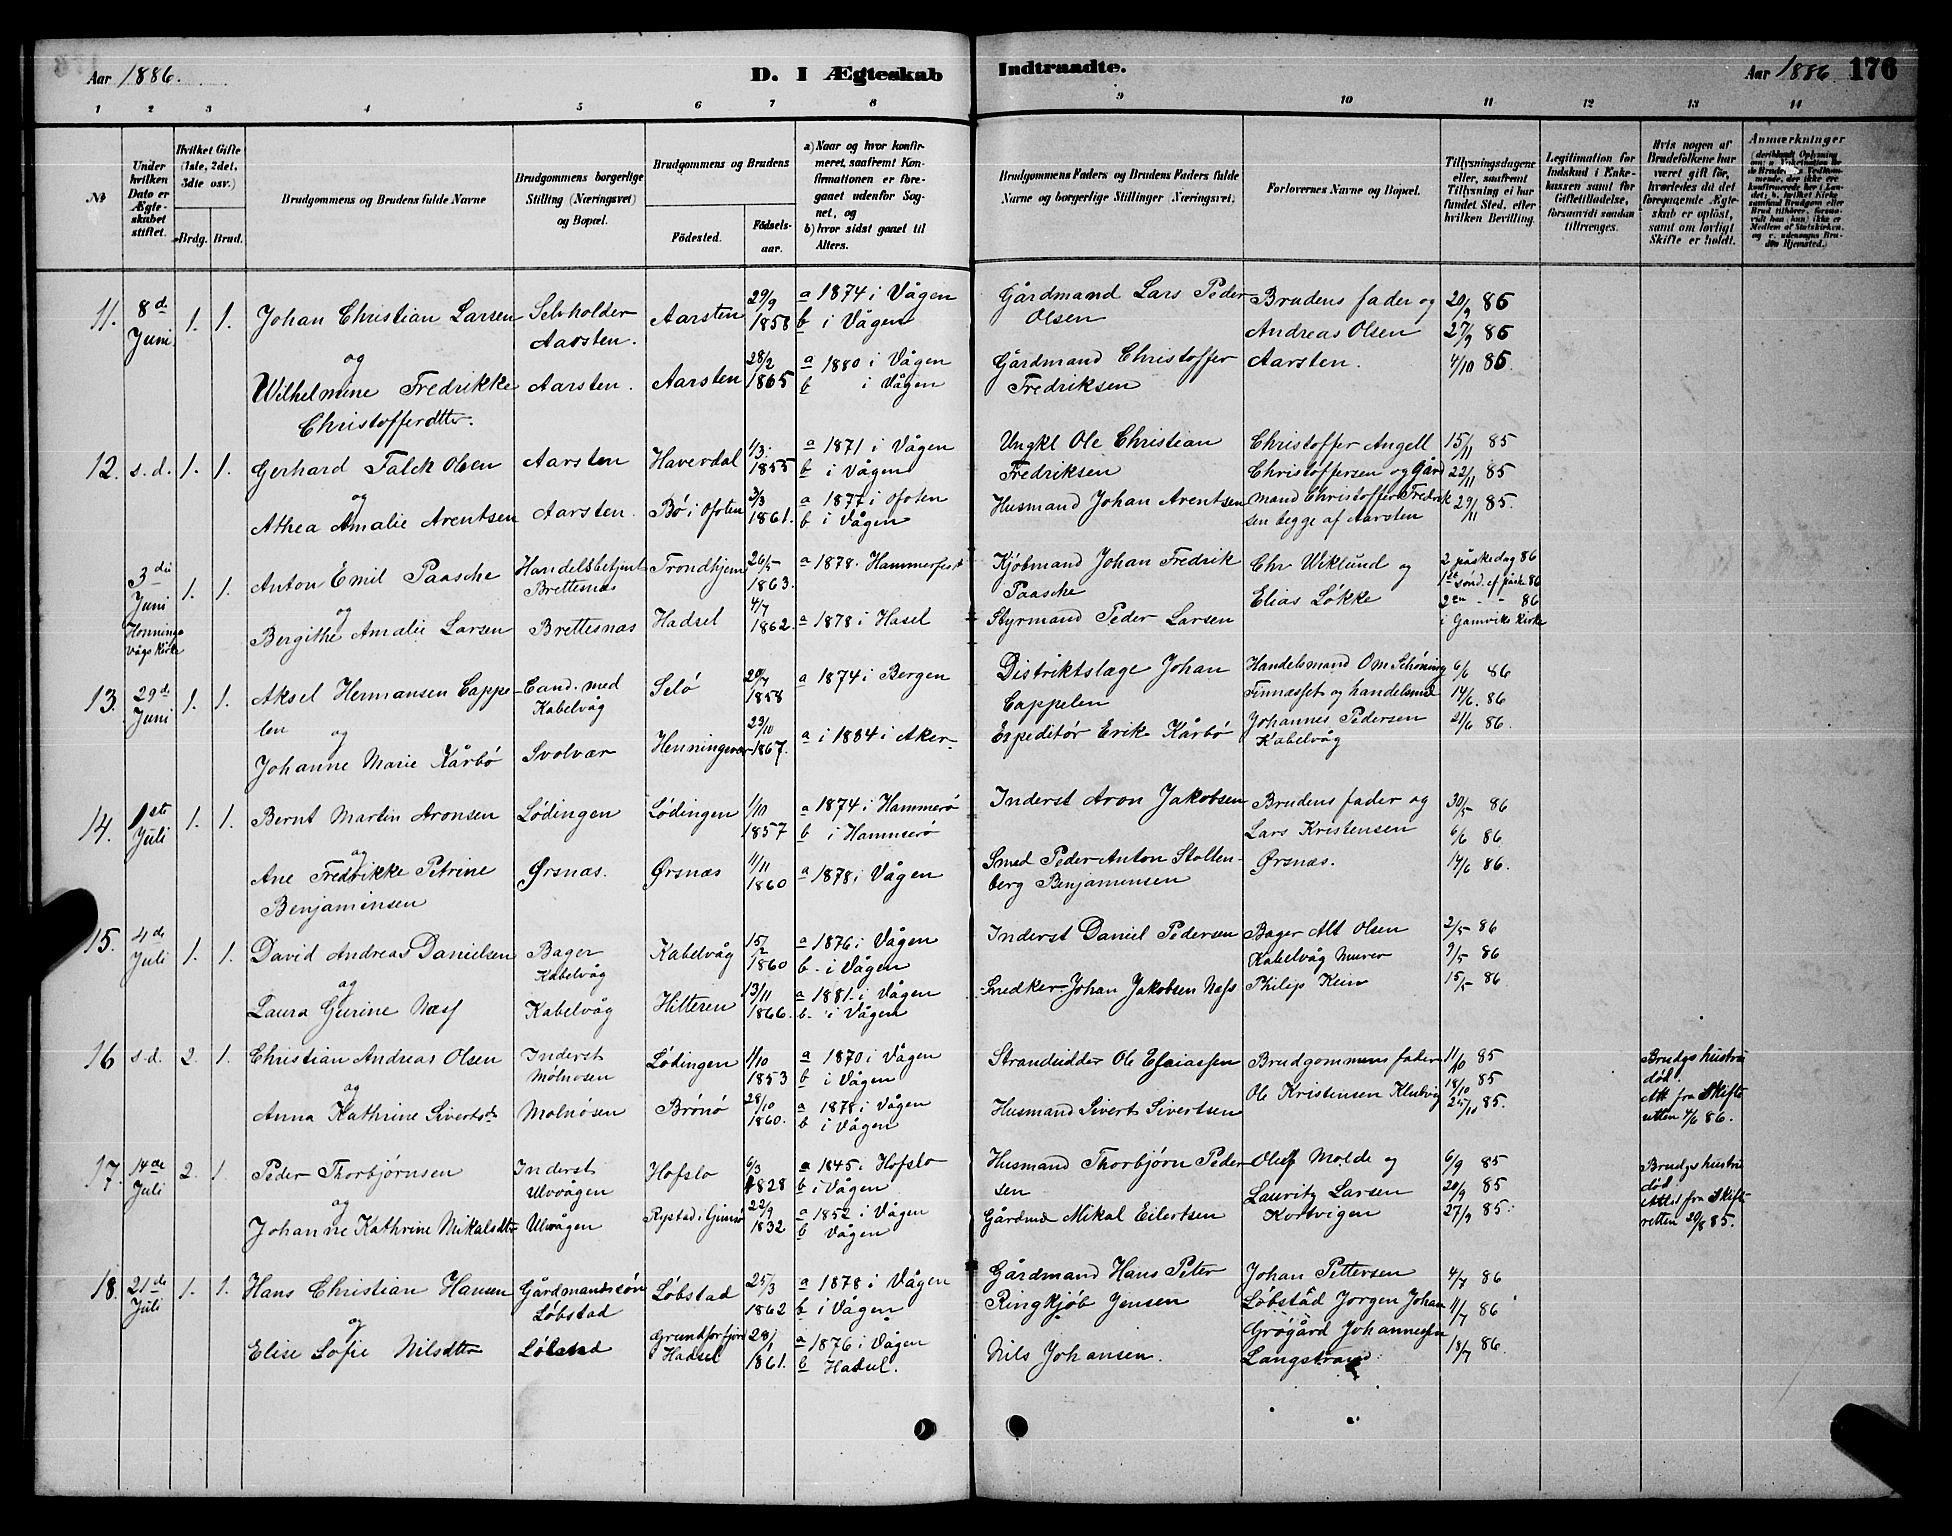 Aar 1886.
D. I Ægteskab Indtraadte.
Aar 1886. 176
1 2 3 4 5 6 7 8 9 10 11 12 13 14
No
Under hvilken Dato er Ægteskabet stiftet.
Hvilket Gifte (1ste, 2det, 3die osv.)
Brdg. Brud.
Brudgommens og Brudens fulde Navne
Brudgommens borgerlige Stilling (Næringsvei) og Bopæl.
Brudgommens og Brudens
Fødested. Fødselsaar.
a) Naar og hvor konfirmeret, saafremt Konfirmationen er foregaaet udenfor Sognet, og
b) hvor sidst gaaet til Alters.
Brudgommens Faders og Brudens Faders fulde Navne og borgerlige Stillinger (Næringsvei).
Forlovernes Navne og Bopæl.
Tillysningsdagene eller, saafremt Tillysning ei har fundet Sted, efter hvilken Bevilling.
Legitimation for Indskud i Enkekassen samt for Giftetilladelse, forsaavidt saadan tiltrænges.
Hvis nogen af Brudefolkene har været gift før, hvorledes da det foregaaende Ægteskab er opløst, samt om lovligt Skifte er holdt.
Anmærkninger
11. 8de Juni 1. 1. Johan Christian Larsen Selvholder Aarsten. Aarsten 29/9 1858 a 1874 i Vågen b i Vågen Gårdmand Lars Peder Olsen Brudens fader og Andreas Olsen Aarsten. 20/9 85 27/9 85 4/10 85.
og
Wilhelmine Fredrikke Christofferdtter. Aarsten. Aarsten 28/2 1865 a 1880 i Vågen b i Vågen Gårdmand Christoffer Fredriksen
12. s.d. 1. 1. Gerhard Falch Olsen Aarsten Haverdal 1/3 1855 a 1871 i Vågen b i Vågen Ungkl Ole Christian Fredriksen Christoffer Angell Christoffersen og Gårdmand Christoffer Fredriksen begge af Aarsten 15/11 85 22/11 85 29/11 85.
og
Athea Amalie Arentsen Aarsten. Bø i Ofoten 3/3 1861. a 1877 i Ofoten b i Vågen Husmand Johan Arentsen
3die Juni Henningsvågs Kirke 1. 1. Anton Emil Paasche Handelsbetjent Brettesnas Trondhjem 26/5 1863. a 1878. Hammerfest Kjøbmand Johan Fredrik Paasche Chr Wiklund og Elias Løkke 2 påskedag 86 1ste sønd. ef påske 86 2en - - 86 i Gamviks kirke
og
Bergithe Amalie Larsen Brettesnas Hadsel 4/7 1862. a 1878 i Hasel Styrmand Peder Larsen
13. 29de Juni 1. 1. Aksel Hermansen Cappelen Cand. med Kabelvåg Selø 20/7 1858 a 1874 i Bergen Distriktslæge Johan Cappelen Handelsmand Om Schøning Finnæsset og handelsmd Johannes Pedersen Kabelvåg 6/6 86 14/6. 86 21/6 86.
og
Johanne Marie Kårbø Svolvær Henningsvær 23/10 1867. a i 1884 i Aker. Expeditør Erik Kårbø
14. 1ste Juli 1. 1. Bernt Martin Aronsen Lødingen Lødingen 1/10 1857 a 1874 i Hammerø b i Hammerø Inderst Aron Jakobsen Brudens fader og Lars Kristensen Ørsnæs. 30/5 86 6/6 86 14/6 86.
og
Ane Fredrikke Petrine Benjaminsen Ørsnæs. Ørsnæs 11/11 1860 a 1878 i Vågen Smed Peder Anton Stoltenberg Benjaminsen
15. 4de Juli 1. 1. David Andreas Danielsen Bager Kabelvåg Kabelvåg 15/2 1860 a 1876 i Vågen b. i Vågen Inderst Daniel Pedersen Bager Alt Olsen Kabelvåg Murer Philip Kein 2/5 86 9/5 86 15/5 86.
og
Laura Gurine Næss Kabelvåg Hitteren 13/11 1866. a 1881 i Vågen b. i Vågen Snedker Johan Jakobsen Næss
16 s.d. 2. 1. Christian Andreas Olsen Inderst Mølnosen Lødingen 1/10 1853 a 1870 i Vågen b i Vågen Strandsidder Ole Esaiassen Brudgommens fader Ole Kristensen 11/10 85 18/10 85 25/10 85. Brudgs hustru død. Att fra Skifteretten 4/6 86.
og
Anna Kathrine Sivertsd. Molnøsen Brønø 28/10 1860. a 1878 i Vågen b i Vågen Husmand Sivert Sivertsen
17. 14de Juli 2. 1. Peder Thorbjørnsen Inderst Ulvvågen Hofslo 6/3 1828 a 1845 i Hofslo b i Vågen Husmand Thorbjørn Pedersen Oluf Molde og Lauritz Larsen Kortvigen 6/9 85 20/9 85 27/9 85. Brudgs hustru død Attest fra Skifteretten 20/8 85.
og
Johanne Kathrine Mikalsdtr Ulvågen Rystad i Gimsø 22/9 1832 a 1852 i Vågen b Vågen Gårdmd Mikal Eilertsen
18. 21de Juli 1. 1. Hans Christian Hansen Gårdmandssøn Løbstad Løbstad 25/3 1862 a 1878 i Vågen b i Vågen Gårdmand Hans Peter Ringkjøb Jensen Johan Pettersen Løbstad Jorgen Johan Grøgård Johannessen Langstrand 4/7 86 11/7 86 18/7 86.
og
Elise Sofie Nilsdtter Løbstad Grundforfjord Hadsel 28/1 1861. a 1876 i Vågen b Hadsel. Nils Johansen.